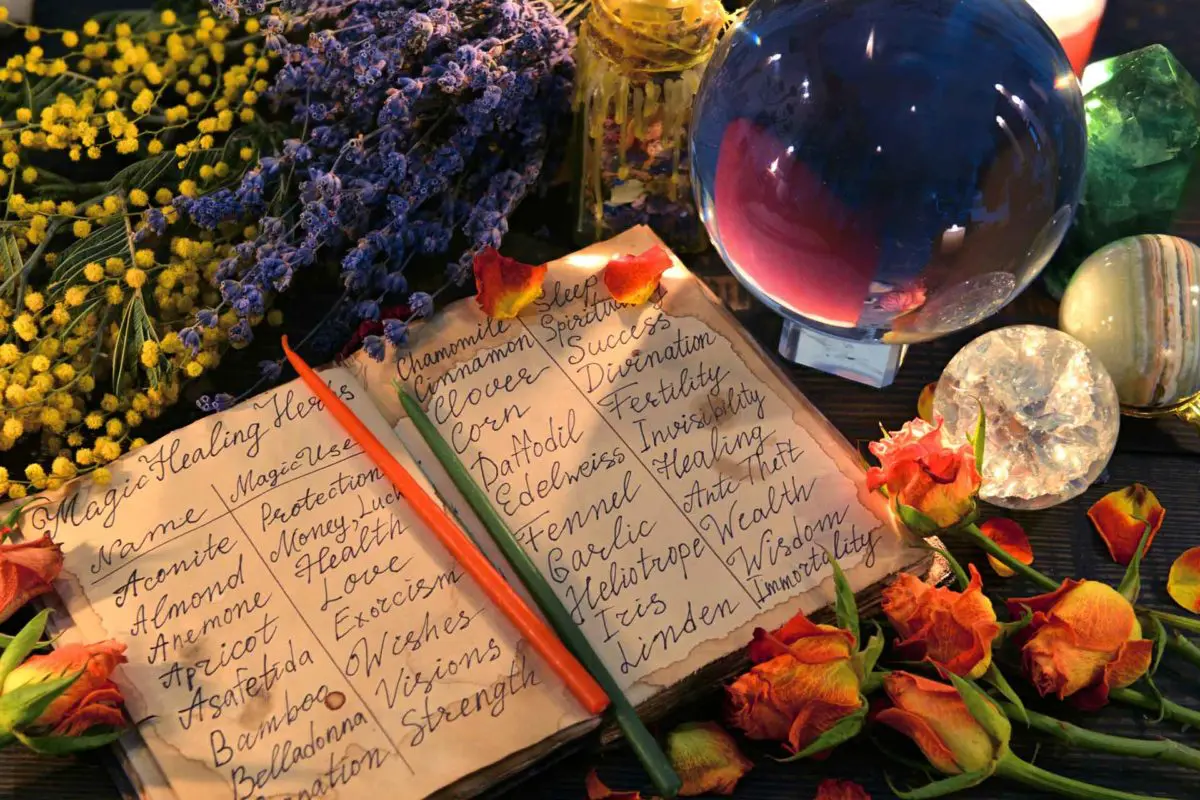 Magic Healing Herbs
Name Magic Use
Aconite Protection
Almond Money, Luck
Anemone Health
Apricot Love
Asafetida Exorcism
Bamboo Wishes
Belladonna Visions
nation Strength
Chamomile Sleep
Cinnamon Spirituality
Clover Success
Corn Divination
Daffodil Fertility
Edelweiss Invisibility
Fennel Healing
Garlic Ante Theft
Heliotrope Wealth
Iris Wisdom
Linden Immortality